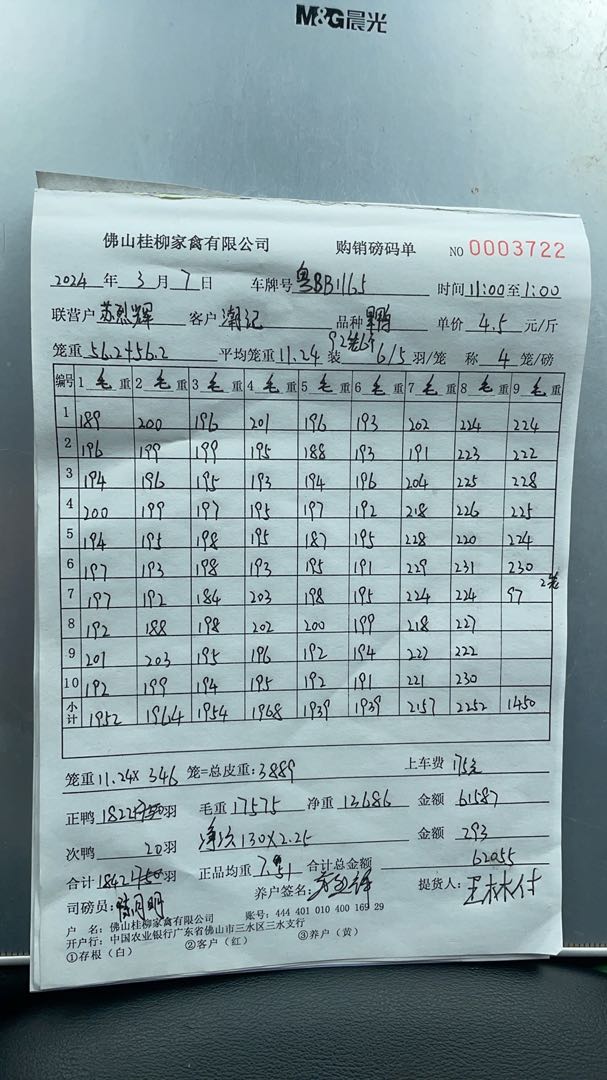 M&G晨光
佛山桂柳家禽有限公司 购销磅码单 NO 0003722
2024 年 3 月 7 日 车牌号 粤BB1165 时间 11:00 至 1:00
联营户 苏烈辉 客户 潮记 品种 单价 4.5 元/斤
笼重 56.2+56.2 平均笼重 11.24 装 6/5 羽/笼 称 4 笼/磅
编号 1 毛 重 2 毛 重 3 毛 重 4 毛 重 5 毛 重 6 毛 重 7 毛 重 8 毛 重 9 毛 重
1 189 200 196 201 196 193 202 224 224
2 196 199 199 195 188 193 191 223 222
3 194 196 195 193 194 196 204 225 228
4 200 199 197 195 197 192 218 226 225
5 194 195 198 195 187 195 228 220 224
6 197 193 198 193 195 191 229 231 230
7 197 192 184 203 198 195 224 224 97 2笼
8 192 188 198 202 200 199 218 227
9 201 203 195 196 192 194 222 222
10 192 199 194 195 192 191 221 230
小计 1952 1964 1954 1968 1939 1939 2157 2252 1450
笼重 11.24× 346 笼=总皮重: 3889 上车费 175元
正鸭 1822 羽 毛重 17575 净重 13686 金额 61587
次鸭 20 羽 净次 130×2.25 金额 293
合计 1842 羽 正品均重 7.51 合计总金额 62055
司磅员: 陈月明 养户签名: 提货人: 王林付
户 名: 佛山桂柳家禽有限公司 账号: 444 401 010 400 169 29
开户行: 中国农业银行广东省佛山市三水区三水支行
①存根（白） ②客户（红） ③养户（黄）